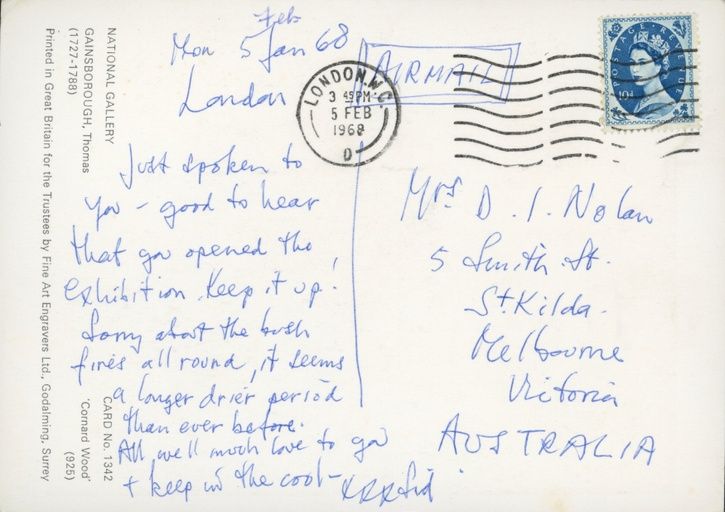 Feb
Mon 5 Jan 68
London
AIRMAIL
LONDON.W.C
3 45PM
5 FEB
1968
D
POSTAGE
REVENUE
10d
Just spoken to
you - good to hear
that you opened the
exhibition. Keep it up!
Sorry about the bush
fires all round, it seems
a longer drier period
than ever before.
All well much love to you
+ keep in the cool -
xxx Sid
Mrs D. I. Nolan
5 Smith St.
St Kilda.
Melbourne
Victoria
AUSTRALIA
NATIONAL GALLERY
GAINSBOROUGH, Thomas
(1727-1788)
CARD No. 1342
'Cornard Wood'
(925)
Printed in Great Britain for the Trustees by Fine Art Engravers Ltd., Godalming, Surrey